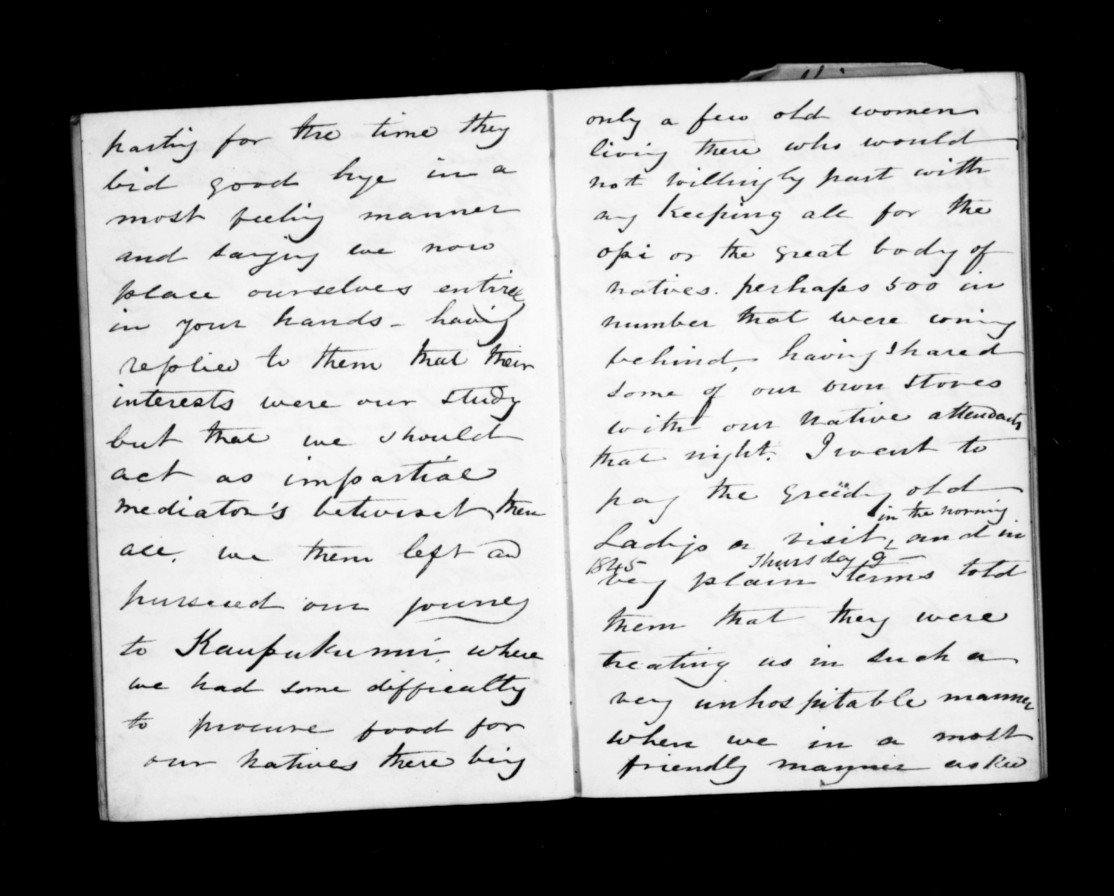 parting for the time they
bid good bye in a
most feeling manner
and saying we now
place ourselves entirely
in your hands - having
replied to them that their
interests were our study
but that we should
act as impartial
mediator's betwixt them
all. we them left and
pursued our journey
to Kaupukunui, where
we had some difficulty
to procure food for
our natives there being
only a few old women
living there who would
not willingly part with
any keeping all for the
opi or the great body of
natives. perhaps 500 in
number that were coming
behind, having shared
some of our own stores
with our native attendants
that night. I went to
pay the greedy old
in the morning
Ladys a visit, and in
1845 Thursday 9
very plain terms told
them that they were
treating us in such a
very unhospitable manner
when we in a most
friendly manner asked